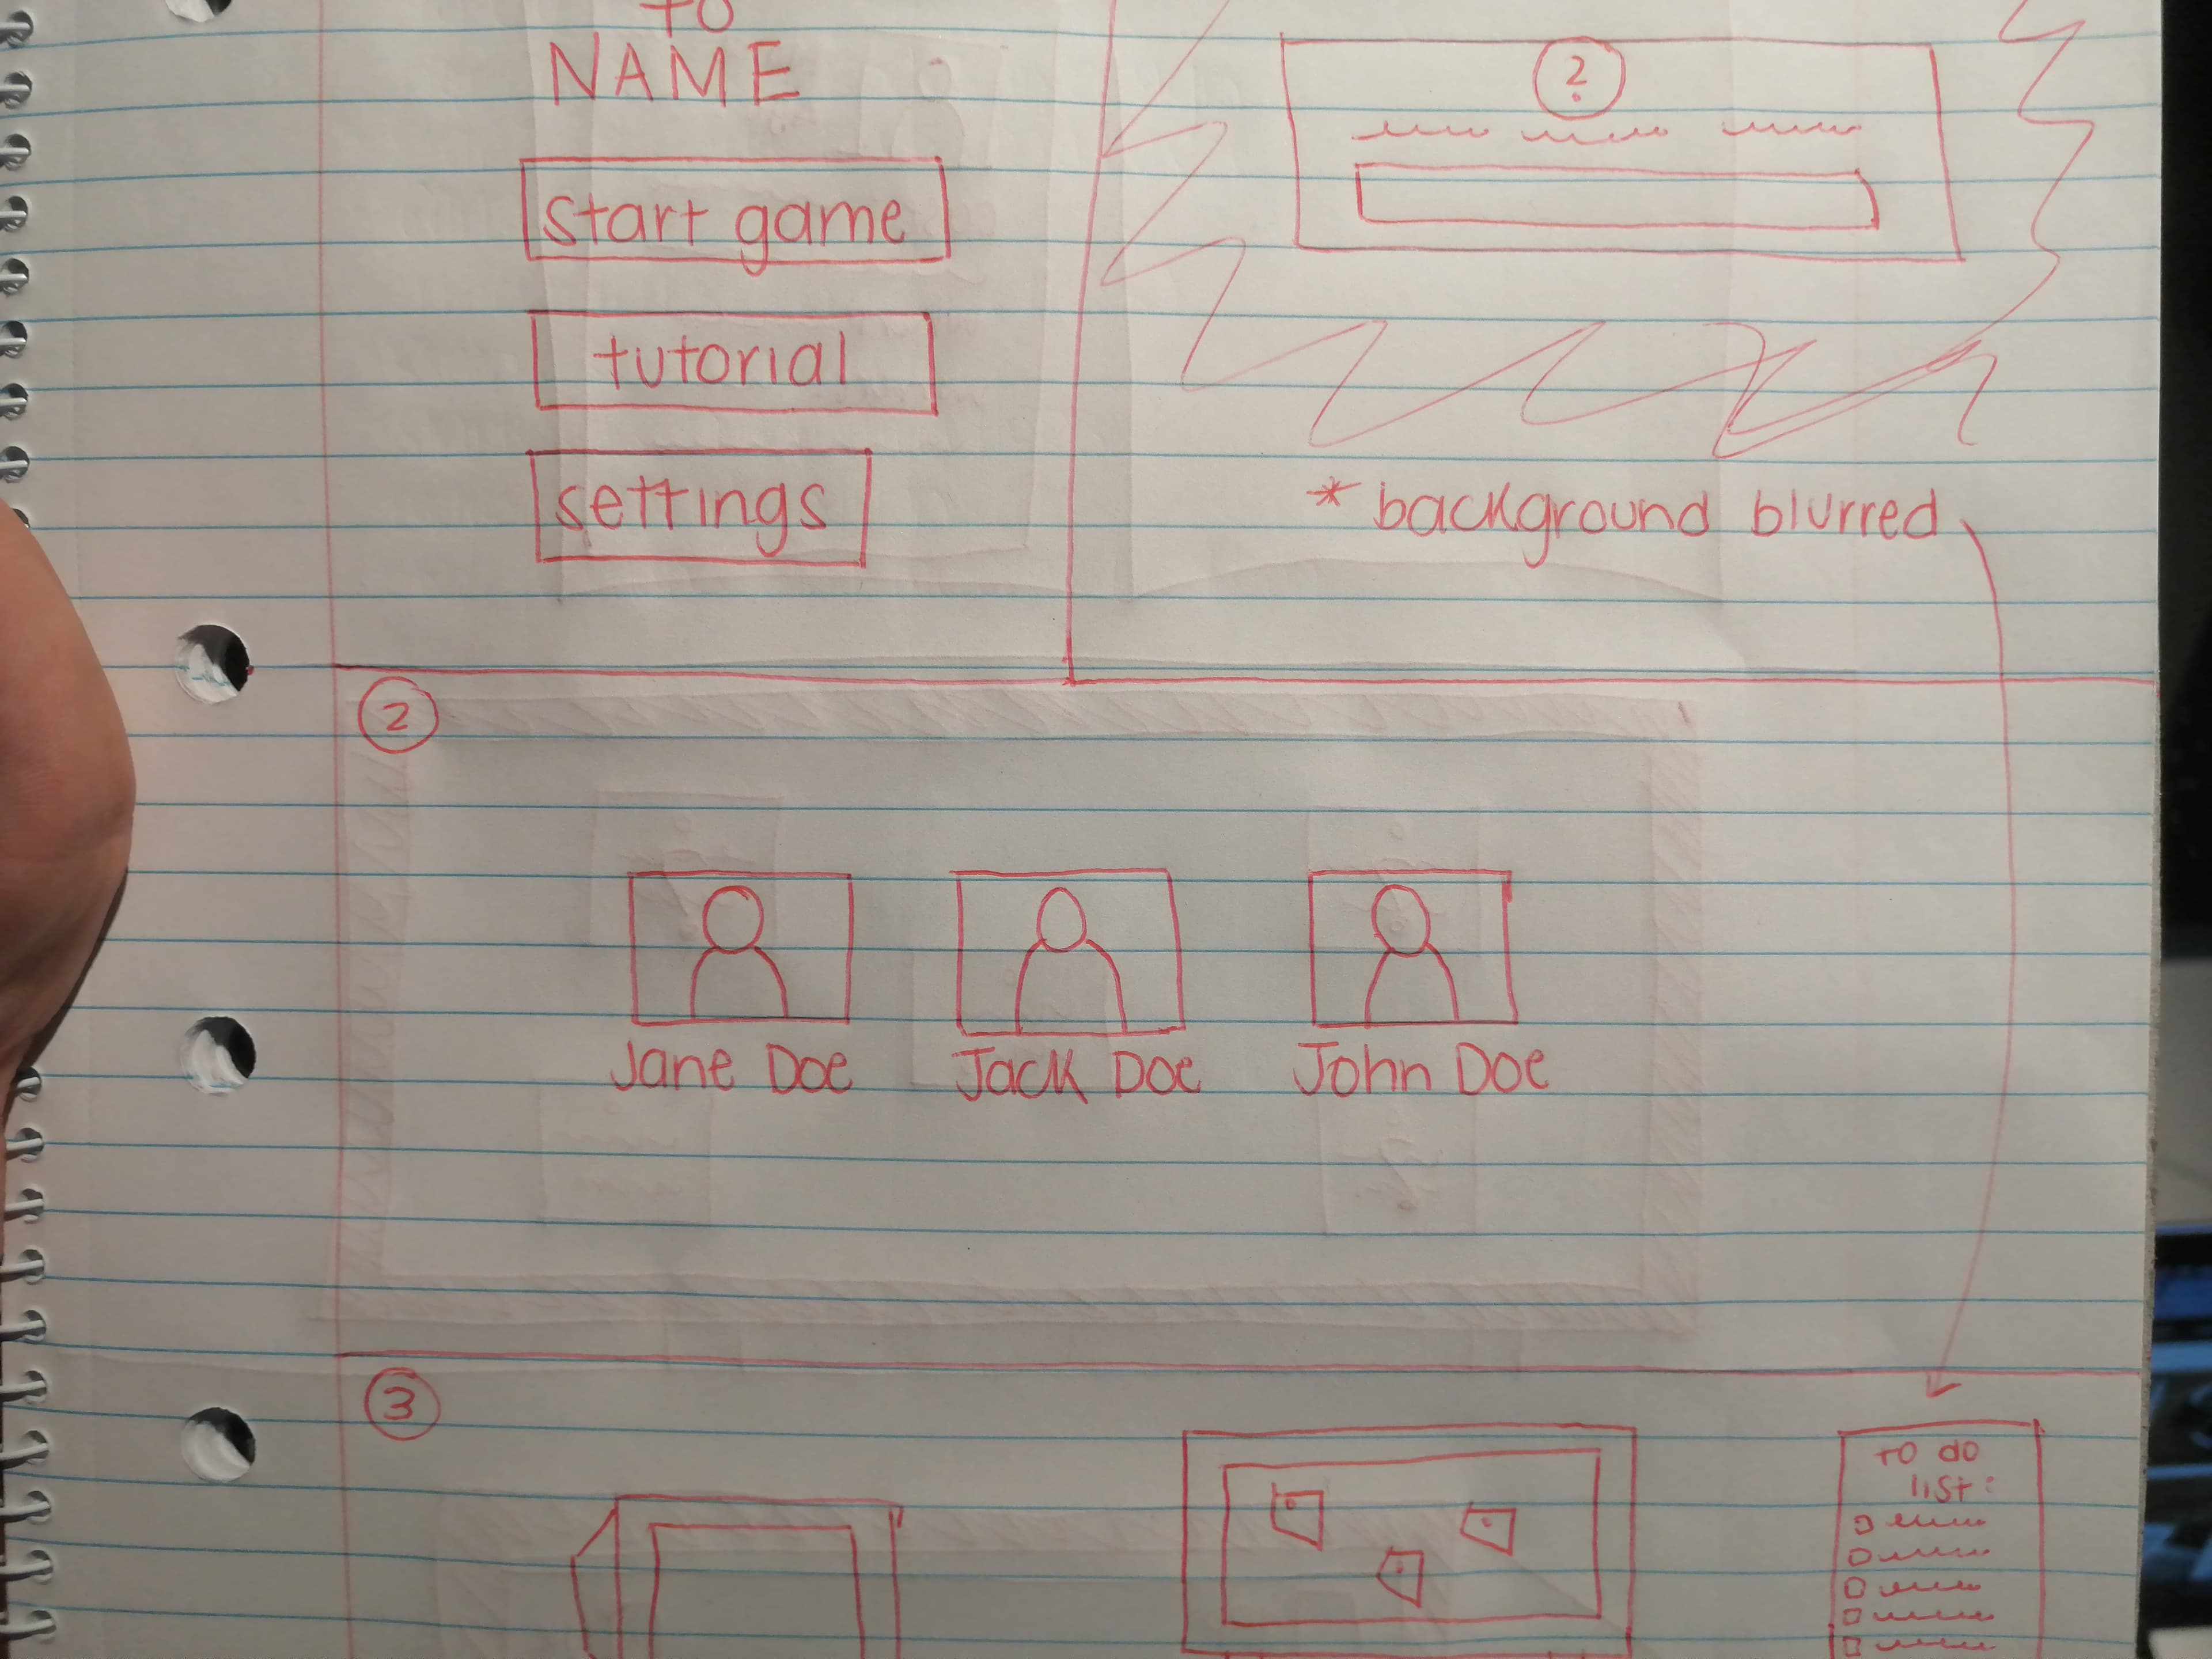 TO
NAME
start game
tutorial
settings
?
* background blurred
2
Jane Doe
Jack Doe
John Doe
3
TO do
list: